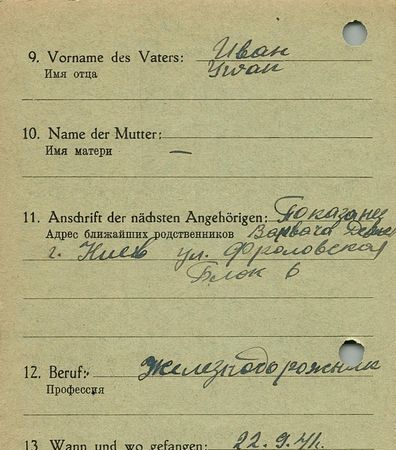 9. Vorname des Vaters: Иван
Имя отца Iwan
10. Name der Mutter:
Имя матери —
11. Anschrift der nächsten Angehörigen:
Адрес ближайших родственников Варвара
г. Киев ул. Фроловская
Блок 6
12. Beruf: Железнодорожник
Профессия
13. Wann und wo gefangen: 22.9.41.